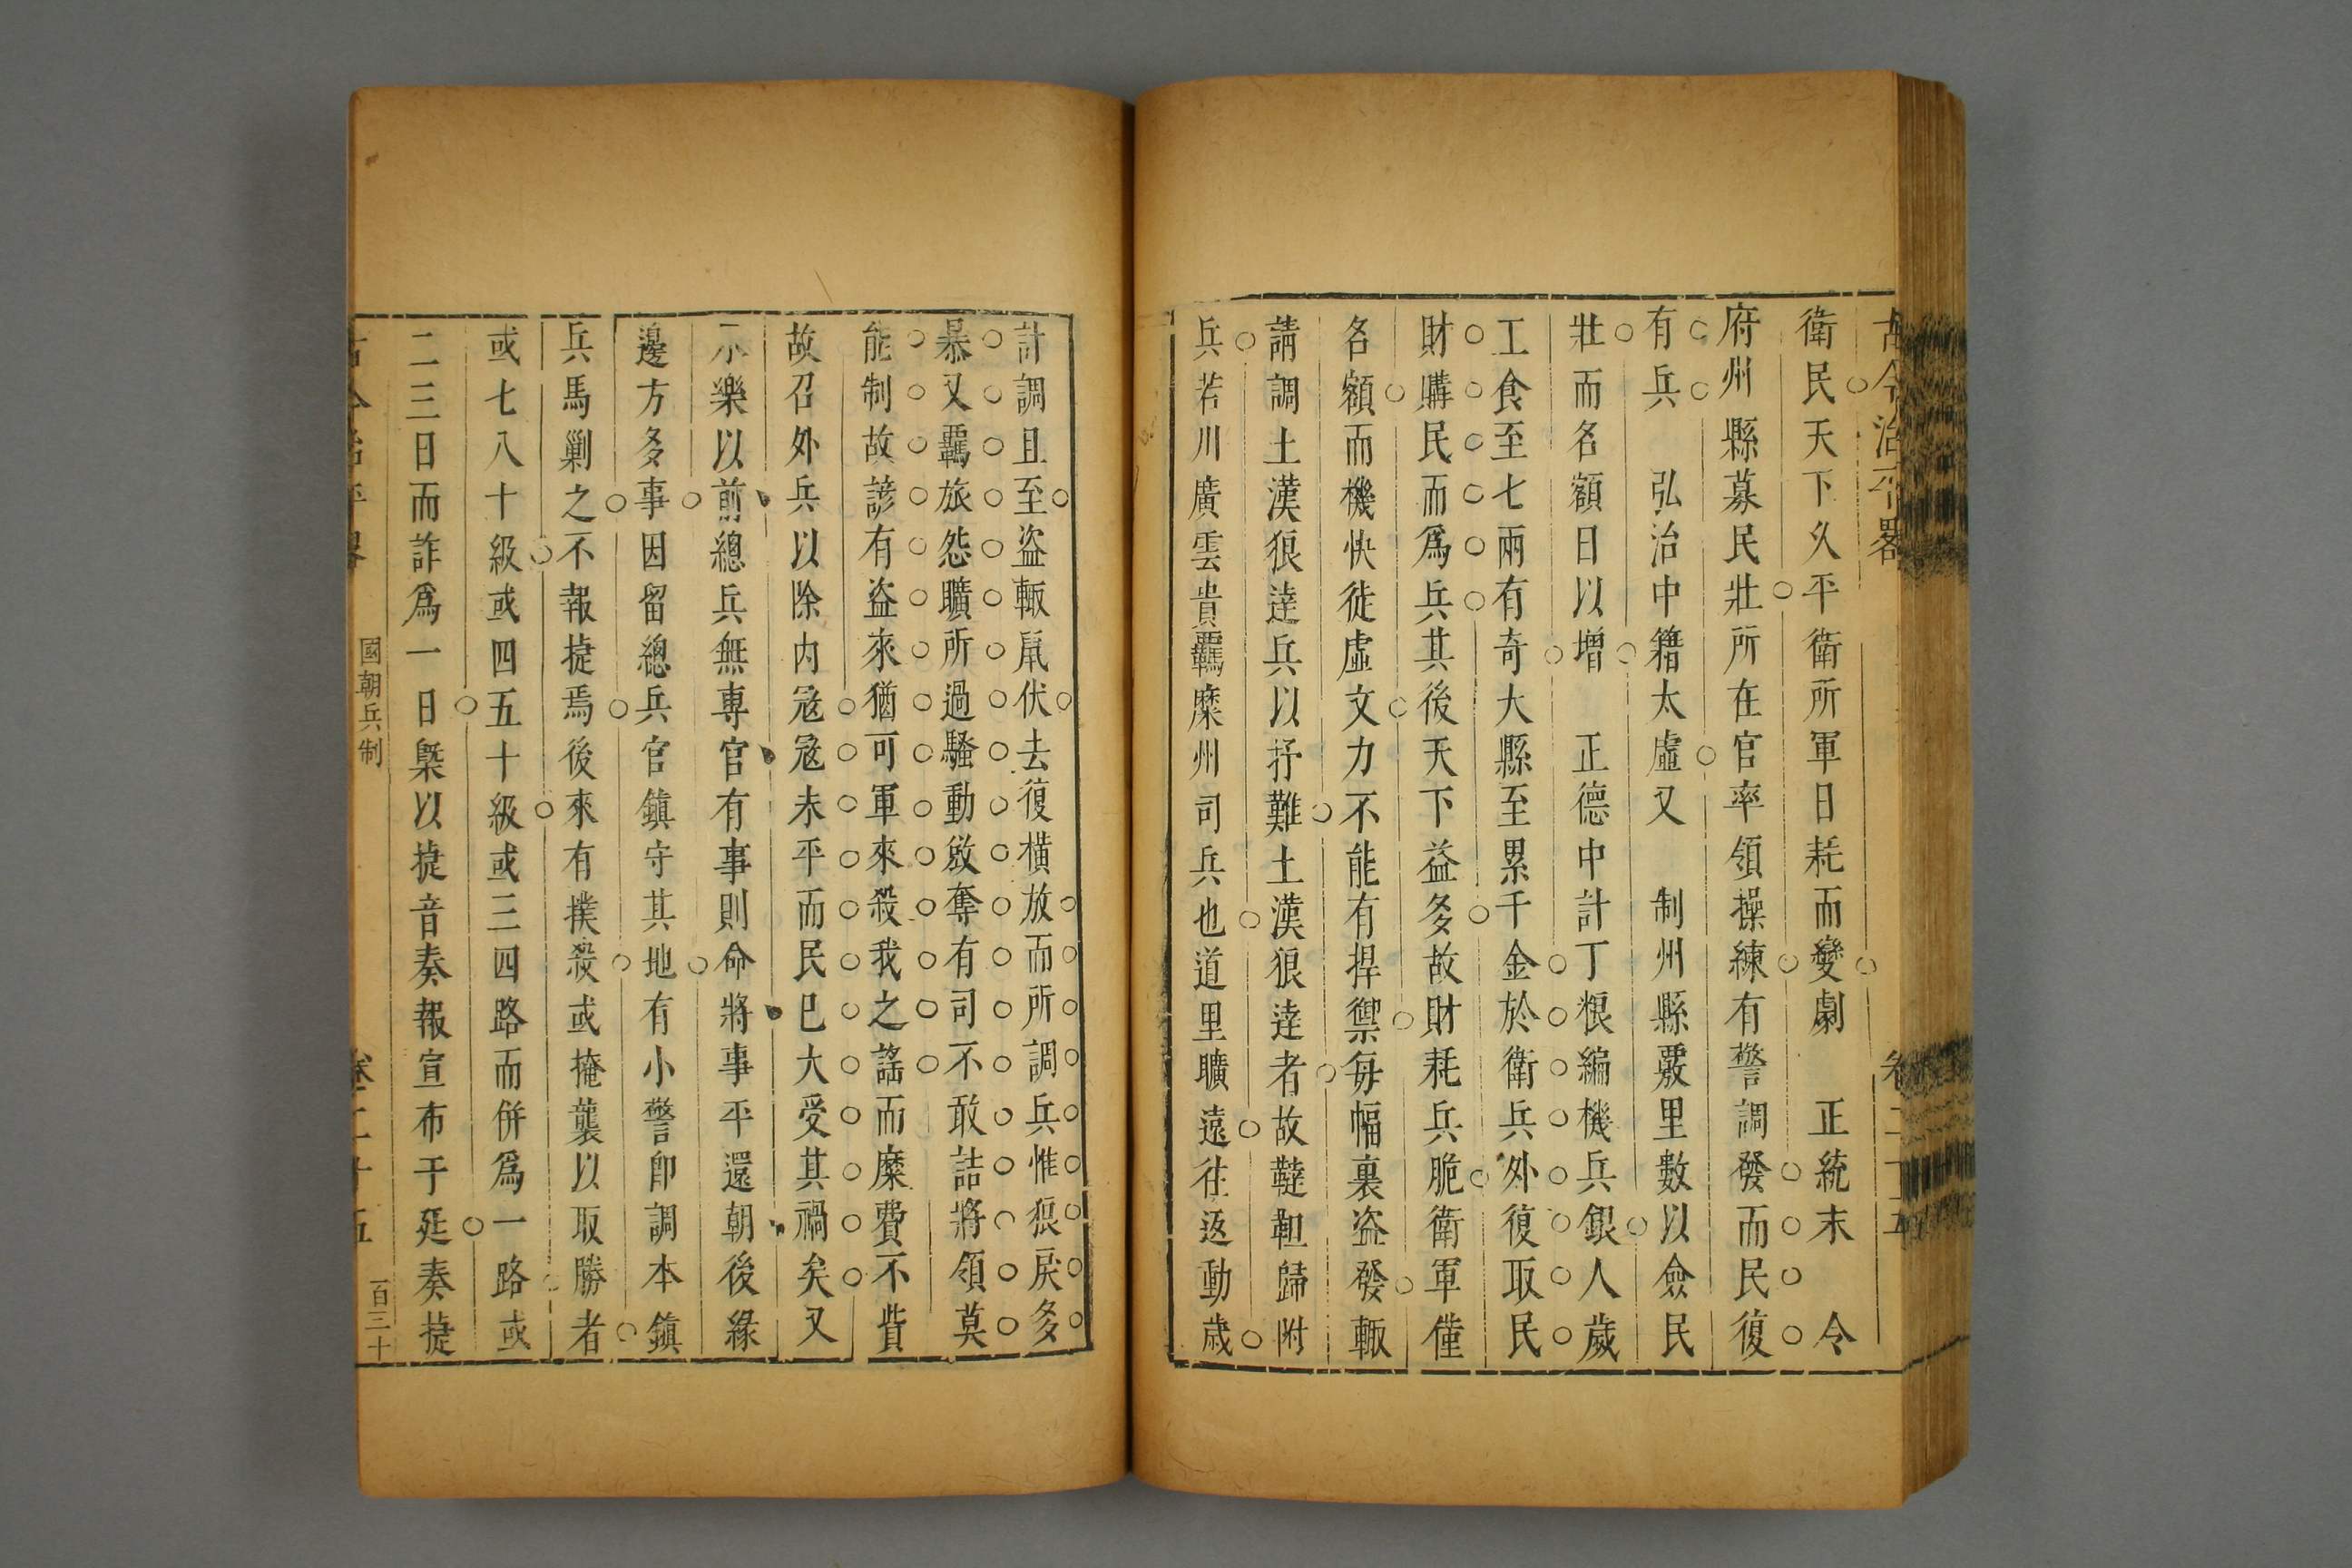 古今治平畧 卷二十五
衛民天下久平衛所軍日耗而變劇 正統末 令
府州縣募民壯所在官率領操練有警調發而民復
有兵 弘治中籍太虛又 制州縣覈里數以僉民
壯而名額日以增 正德中計丁粮編機兵銀人歲
工食至七兩有奇大縣至累千金於衛兵外復取民
財購民而爲兵其後天下益多故財耗兵脆衛軍僅
各額而機快徒虛文力不能有捍禦每幅裏盜發輙
請調土漢狼達兵以抒難土漢狼達者故韃靼歸附
兵若川廣雲貴羈縻州司兵也道里曠遠往返動歲
計調且至盜輙鼠伏去復橫放而所調兵惟狼戾多
暴又羈旅怨曠所過騷動啟奪有司不敢詰將領莫
能制故諺有盜來猶可軍來殺我之謡而糜費不貲
故召外兵以除内冦冦未平而民已大受其禍矣又
不樂以前總兵無專官有事則命將事平還朝後緣
邊方多事因留總兵官鎮守其地有小警卽調本鎮
兵馬剿之不報㨗焉後來有撲殺或掩襲以取勝者
或七八十級或四五十級或三四路而併爲一路或
二三日而詐爲一日槩以㨗音奏報宣布于廷奏㨗
古今治平畧 國朝兵制 卷二十五 百三十